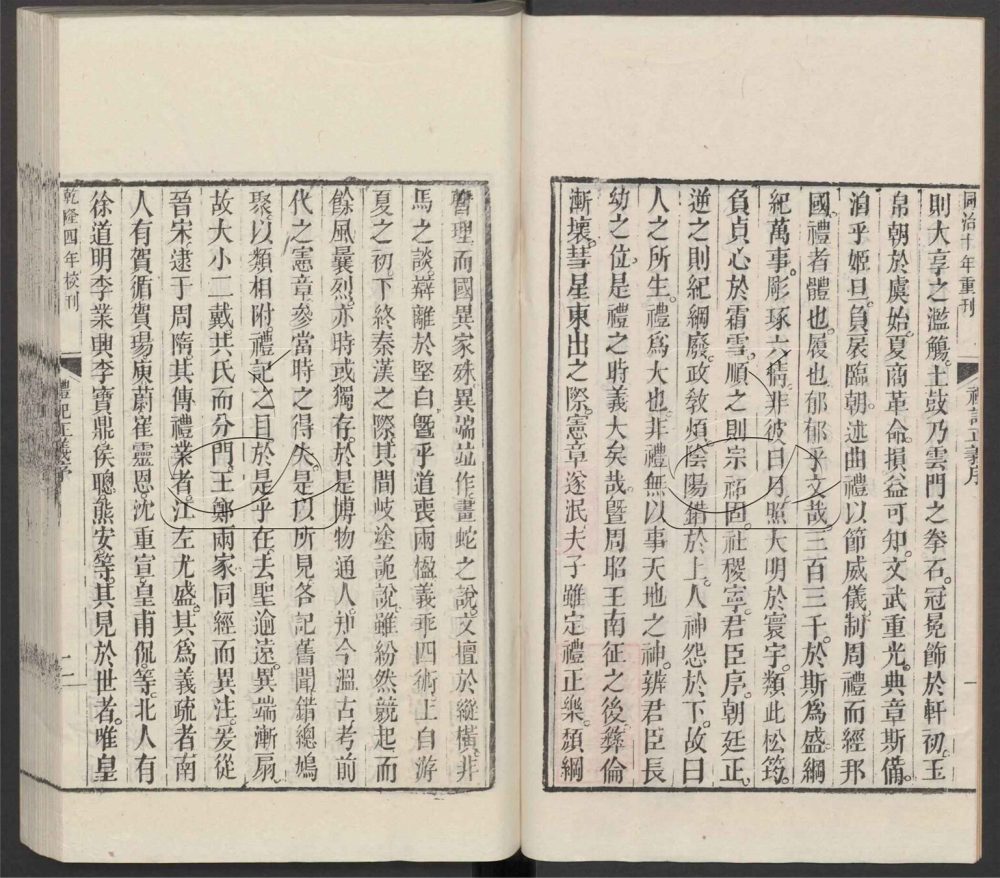 同治十年重刋
禮記正義序
一
則大享之濫觴土鼓乃雲門之拳石冠冕飾於軒初玉
帛朝於虞始夏商革命損益可知文武重光典章斯備
洎乎姬旦負扆臨朝述曲禮以節威儀制周禮而經邦
國禮者體也履也郁郁乎文哉三百三千於斯爲盛綱
紀萬事彫琢六情非彼日月照大明於寰宇類此松筠
負貞心於霜雪順之則宗祏固社稷寧君臣序朝廷正
逆之則紀綱廢政教煩陰陽錯於上人神怨於下故曰
人之所生禮爲大也非禮無以事天地之神辨君臣長
幼之位是禮之時義大矣哉暨周昭王南征之後彝倫
漸壞彗星東出之際憲章遂泯夫子雖定禮正樂頹綱
暫理而國異家殊異端並作畫蛇之說文擅於縱橫非
馬之談辯離於堅白曁乎道喪兩楹義乖四術上自游
夏之初下終秦漢之際其間岐塗詭說雖紛然競起而
餘風曩烈亦時或獨存於是博物通人知今溫古考前
代之憲章參當時之得失是以所見各記舊聞錯總鳩
聚以類相附禮記之目於是乎在去聖逾遠異端漸扇
故大小二戴共氏而分門王鄭兩家同經而異注爰從
晉宋逮于周隋其傳禮業者江左尤盛其爲義疏者南
人有賀循賀瑒庾蔚崔靈恩沈重宣皇甫侃等北人有
徐道明李業興李寶鼎侯聰熊安等其見於世者唯皇
乾隆四年校刋
禮記正義序
二